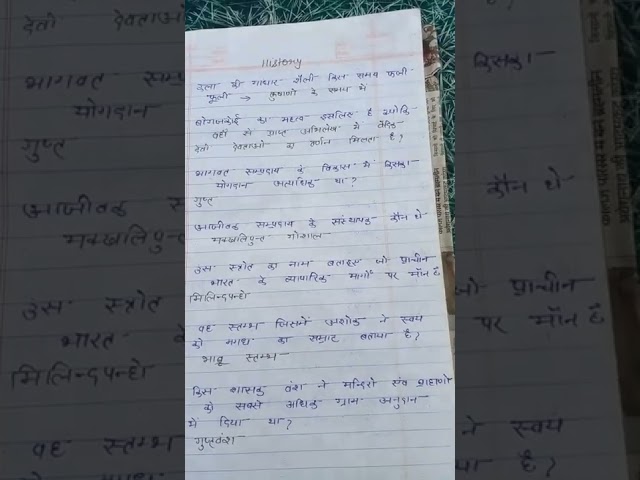 History
कला की गांधार शैली किस समय फूली
फूली → कुषाणो के समय मे
बोगजकोई का महत्व इसलिए है क्योकि
वहाँ से प्राप्त अभिलेख मे वैदिक
देवी देवताओ का वर्णन मिलता है?
भागवत सम्प्रदाय के विकास मे किसका
योगदान अत्यधिक था?
गुप्त
आजीवक सम्प्रदाय के संस्थापक कौन थे
मक्खलिपुत्त गोशाल
उस स्त्रोत का नाम बताइए जो प्राचीन
भारत के व्यापारिक मार्गों पर मौन है
मिलिन्दपन्हो
वह स्तम्भ जिसमें अशोक ने स्वयं
को मगध का सम्राट बताया है?
भाब्रू स्तम्भ
किस शासक वंश ने मन्दिरो एंव ब्राह्मणो
को सबसे अधिक ग्राम अनुदान
मे दिया था?
गुप्तवंश